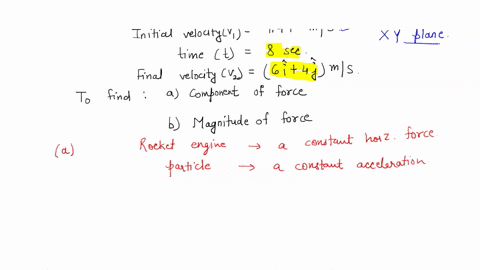 Initial velocity (V₁) m/s
XY plane.
time (t) = 8 sec.
Final velocity (V₂) = (6î + 4ĵ) m/s.
To find : a) Component of force
b) Magnitude of force
(a) Rocket engine → a constant horz. force
particle → a constant acceleration